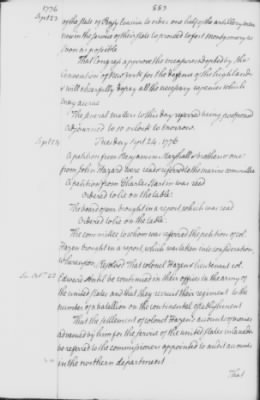 1776 557
Sept 23 of the State of Pensylvania to order one half of the artillery men
now in the service of their state to proceed to fort montgomery as
soon as possible
That Congress approve the measures adopted by the
Convention of New York for the defence of the highlands
& will chearfully defray all the necessary expences which
may accrue
The several matters to this day referred being postponed
Adjourned to 10 o'clock to morrow.
Sept 24 Tuesday Sept 24. 1776
A petition from Benjamin Marshall & brothers & one
from John Hazard were read & referred to the marine committee
A petition from Charles was read
Ordered to lie on the table:
The board of war brought in a report which was read
Ordered to lie on the table:
The committee to whom was referred the petition of col.
Hazen brought in a report which was taken into consideration
Whereupon Resolved That colonel Hazen & lieutenant col.
Antill should be continued in their offices in the army of
the united states and that they recruit their regiment to the
number of a batallion on the continental establishment
That the settlement of colonel Hazen's accounts & monies
advanced by him for the service of the united states in Canada
be referred to the commissioners appointed to audit accounts
in the northern department
That